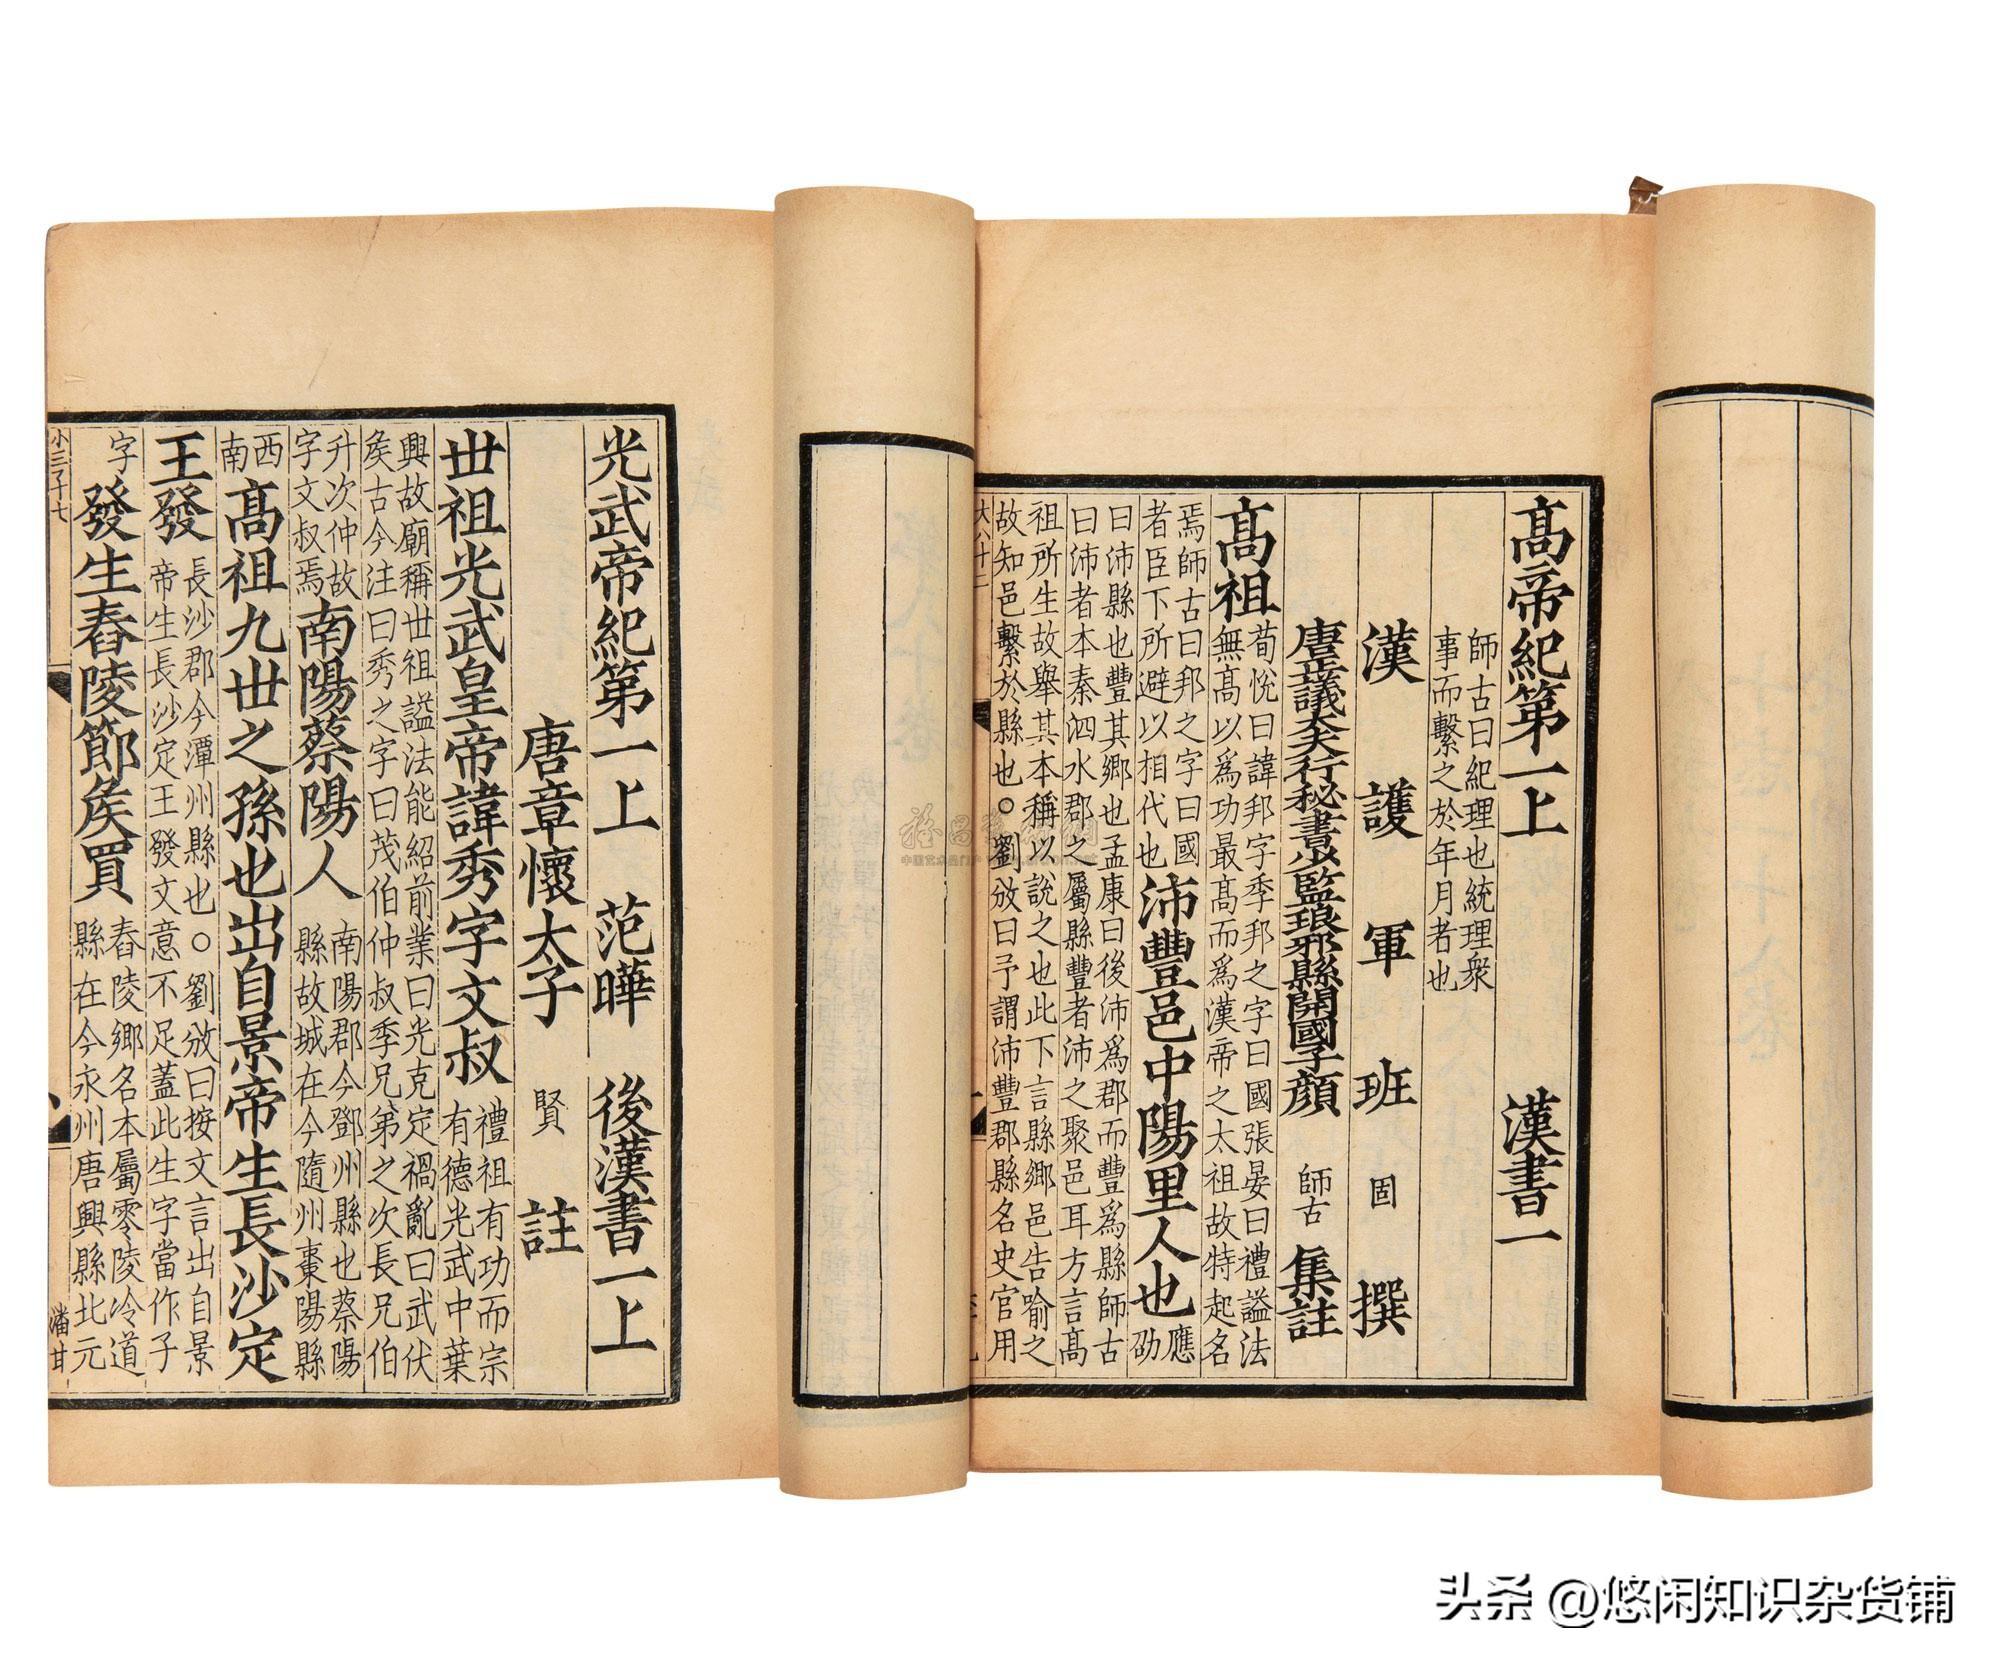 高帝紀第一上 漢書一
師古曰紀理也統理衆
事而繫之於年月者也
漢護軍班固撰
唐正議大夫行秘書少監琅邪縣開國子顔師古集註
高祖
荀悅曰諱邦字季邦之字曰國張晏曰禮謚法
無高以爲功最高而爲漢帝之太祖故特起名
焉師古曰邦之字曰國
者臣下所避以相代也
沛豐邑中陽里人也
應
劭
曰沛縣也豐其鄉也孟康曰後沛爲郡而豐爲縣師古
曰沛者本秦泗水郡之屬縣豐者沛之聚邑耳方言高
祖所生故舉其本稱以說之也此下言縣鄉邑告喻之
故知邑繫於縣也○劉攽曰予謂沛豐郡縣名史官用
大八十二
光武帝紀第一上 范曄 後漢書一上
唐章懷太子賢註
世祖光武皇帝諱秀字文叔
禮祖有功而宗
有德光武中葉
興故廟稱世祖謚法能紹前業曰光克定禍亂曰武伏
矦古今注曰秀之字曰茂伯仲叔季兄弟之次長兄伯
升次仲故
字文叔焉
南陽蔡陽人
南陽郡今鄧州縣也蔡陽
縣故城在今隨州棗陽縣
西
南
高祖九世之孫也出自景帝生長沙定
王發
長沙郡今潭州縣也○劉攽曰按文言出自景
帝生長沙定王發文意不足蓋此生字當作子
字
發生舂陵節矦買
舂陵鄉名本屬零陵冷道
縣在今永州唐興縣北元
小三千七
潘甘
头条 @悠闲知识杂货铺